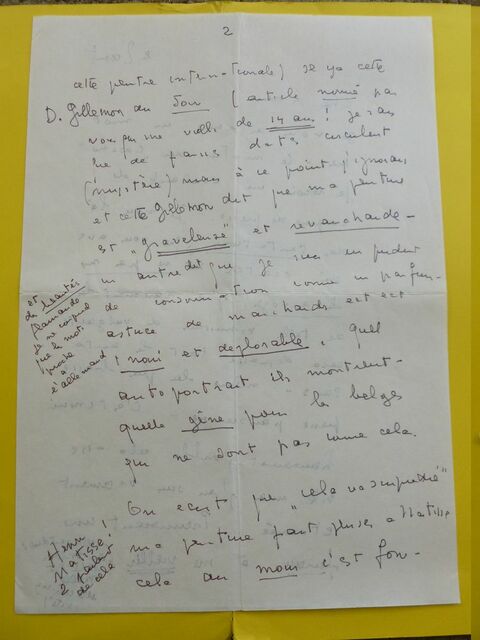 2
cette peintre internationale) il y a cette
D. Gillemon du Soir (article par
vous une ville de 14 ans! je sais
que de dates circulent
(mystère) mais à ce point j'ignorais
et cette Gillemon dit que ma peinture
est "graveleuse" et revancharde -
un autre dit que je suis un produit
de consommation comme un parfum -
astuce de marchands est est
et déplorable, quel
autoportrait ils montrent -
quelle gêne pour les belges
qui ne sont pas comme cela.
On écrit que "cela
ma peinture fait penser à Matisse
cela au moins c'est fon-
et
de
flamands
je ne comprend
que le mot
proche
à
l'allemand
Henri
Matisse!
2
de cela